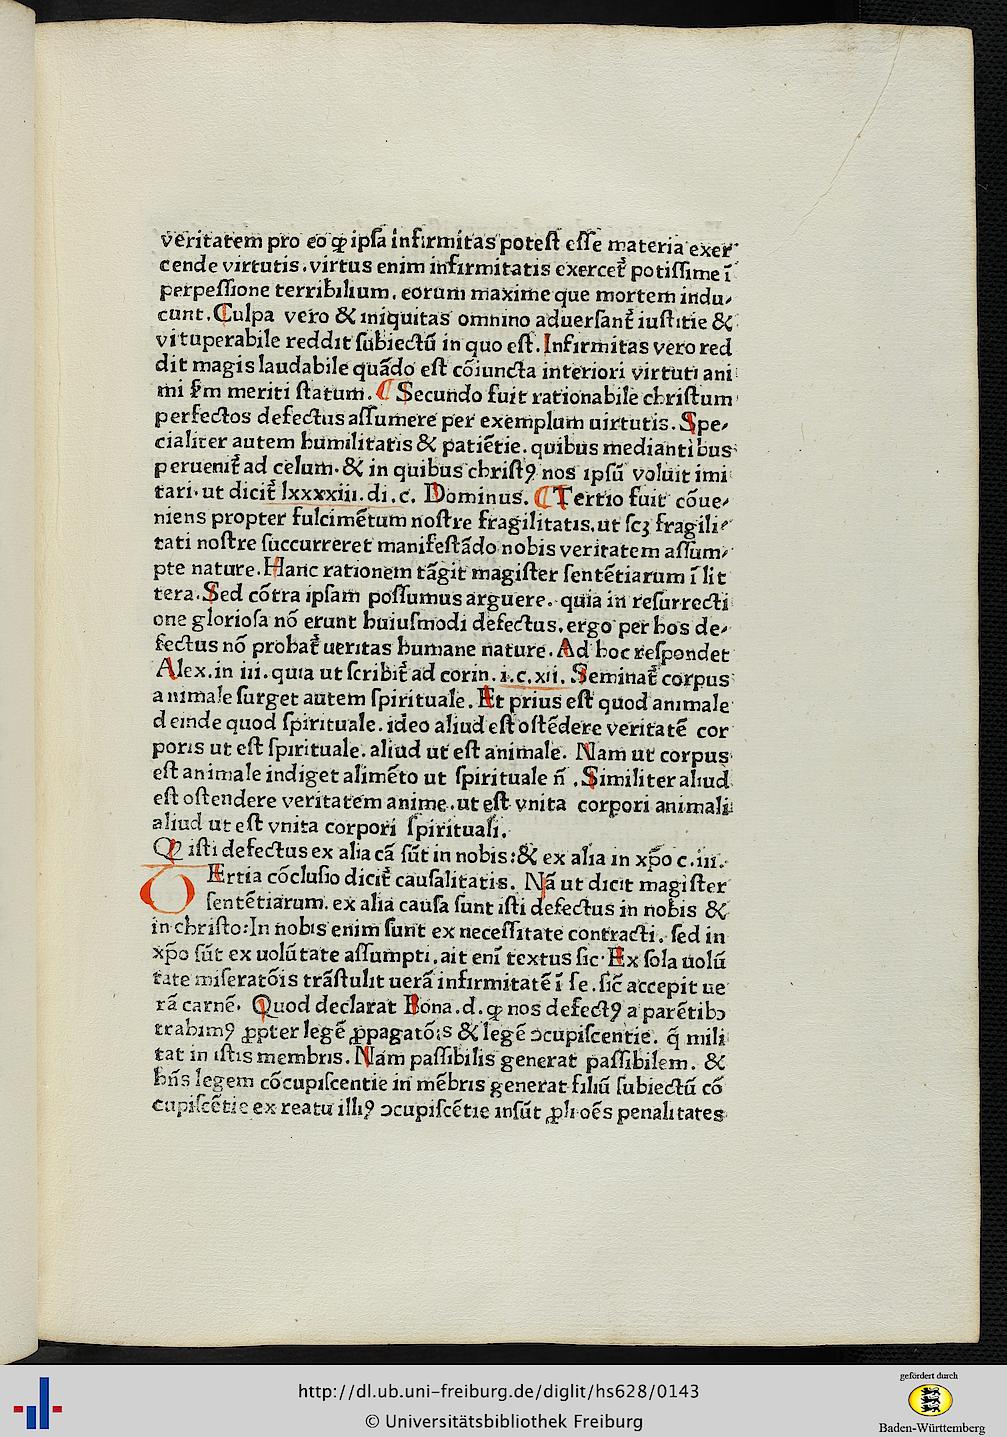 veritatem pro eo ꝙ ipſa infirmitas poteſt eſſe materia exer⸗
cende virtutis. virtus enim infirmitatis exercet᷑ potiſſime ī
perpeſſione terribilium. eorum maxime que mortem indu⸗
cunt. Culpa vero & iniquitas omnino aduerſant᷑ iuſtitie &
vituperabile reddit ſubiectū in quo eſt. Infirmitas vero red
dit magis laudabile quādo eſt cōiuncta interiori virtuti ani
mi ſm̄ meriti ſtatum. ¶ Secundo fuit rationabile chriſtum
perfectos defectus aſſumere per exemplum uirtutis. Spe⸗
cialiter autem humilitatis & patiētie. quibus mediantibus
peruenit᷑ ad celum. & in quibus chriſtꝰ nos ipſū voluit imi
tari. ut dicit᷑ lxxxxiii. di. c. Dominus. ¶ Tertio fuit cōue⸗
niens propter fulcimētum noſtre fragilitatis. ut ſcꝫ fragili⸗
tati noſtre ſuccurreret manifeſtādo nobis veritatem aſſum⸗
pte nature. Hanc rationem tāgit magiſter ſentētiarum ī lit
tera. Sed cōtra ipſam poſſumus arguere. quia in reſurrecti
one glorioſa nō erunt huiuſmodi defectus. ergo per hos de⸗
fectus nō probat᷑ ueritas humane nature. Ad hoc reſpondet
Alex. in iii. quia ut ſcribit᷑ ad corin. i. c. xii. Seminat᷑ corpus
animale ſurget autem ſpirituale. Et prius eſt quod animale
deinde quod ſpirituale. ideo aliud eſt oſtēdere veritatē cor
poris ut eſt ſpirituale. aliud ut eſt animale. Nam ut corpus
eſt animale indiget alimēto ut ſpirituale n̄. Similiter aliud
eſt oſtendere veritatem anime. ut eſt vnita corpori animali
aliud ut eſt vnita corpori ſpirituali.
Ꝙ iſti defectus ex alia cā ſūt in nobis: & ex alia in xp̄o c. iii.
TErtia cōcluſio dicit᷑ cauſalitatis. Nā ut dicit magiſter
ſentētiarum. ex alia cauſa ſunt iſti defectus in nobis &
in chriſto: In nobis enim ſunt ex neceſſitate contracti. ſed in
xp̄o ſūt ex uolūtate aſſumpti. ait eni᷑ textus ſic. Ex ſola uolū
tate miſeratōis trāſtulit uerā infirmitatē ī ſe. ſic̄ accepit ue
rā carnē. Quod declarat Bona. d. ꝙ nos defectꝰ a parētibꝫ
trahimꝰ ꝓpter legē ꝓpagatōis & legē ↄcupiſcentie. q̄ mili
tat in iſtis membris. Nam paſſibilis generat paſſibilem. &
hn̄s legem cōcupiſcentie in mēbris generat filiū ſubiectū cō
cupiſcētie ex reatu illiꝰ ↄcupiſcētie inſūt ꝓli oēs penalitates
http://dl.ub.uni-freiburg.de/diglit/hs628/0143
© Universitätsbibliothek Freiburg
gefördert durch
Baden-Württemberg